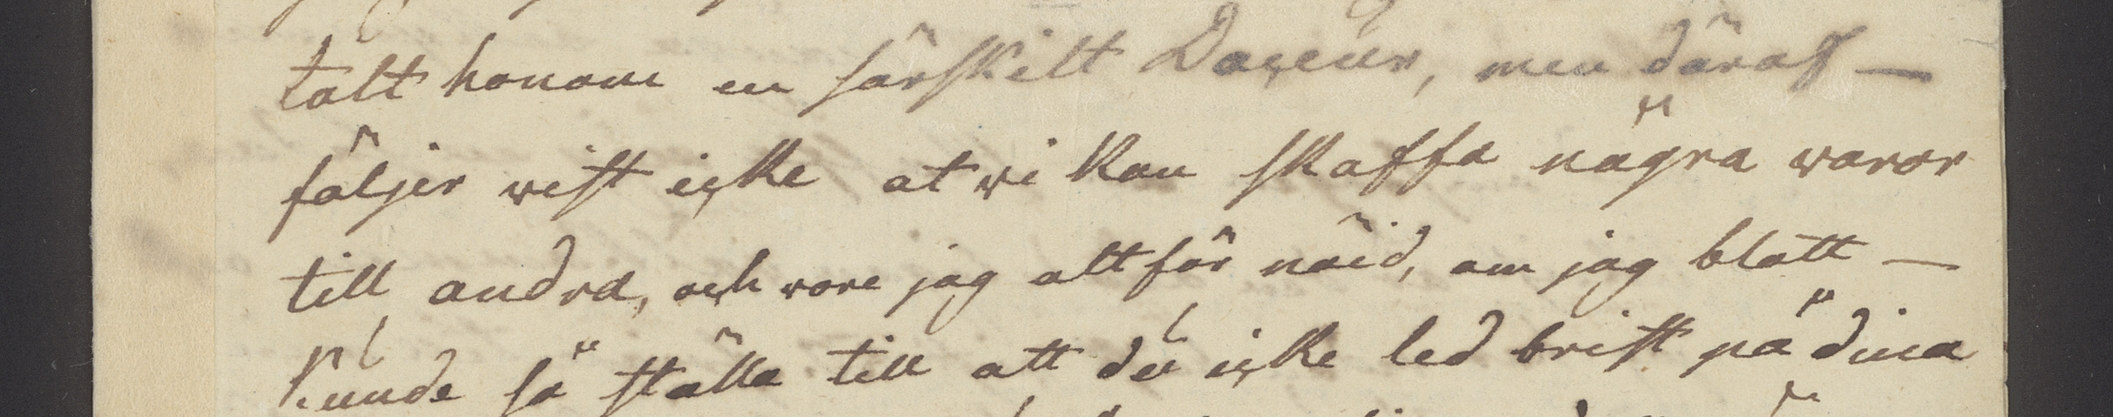 talt honom en särskilt Daceur, men däraf —
följer wist icke at wi kan skaffa några waror
till andra, och vore jag altför nöid, om jag blott —
kunde så ställa till att du icke led brist på dina